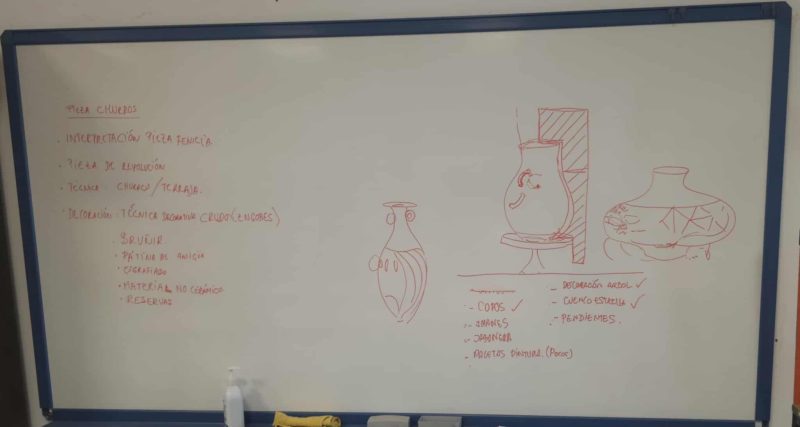 PIEZA CHURROS
- INTERPRETACIÓN PIEZA FENICIA
- PIEZA DE REVOLUCIÓN
- TÉCNICA: CHURRO / TERRAJA.
- DECORACIÓN: TÉCNICA DECORATIVA CRUDO (ENGOBES)
- BRUÑIR
- PÁTINA DE
- ESGRAFIADO
- MATERIAL NO CERÁMICO
- RESERVAS
- COPOS ✓
- IMANES
- JABONERA
- PINTURA. (POCOS)
- DECORACIÓN ÁRBOL ✓
- CUENCO ESTRELLA ✓
- PENDIENTES.